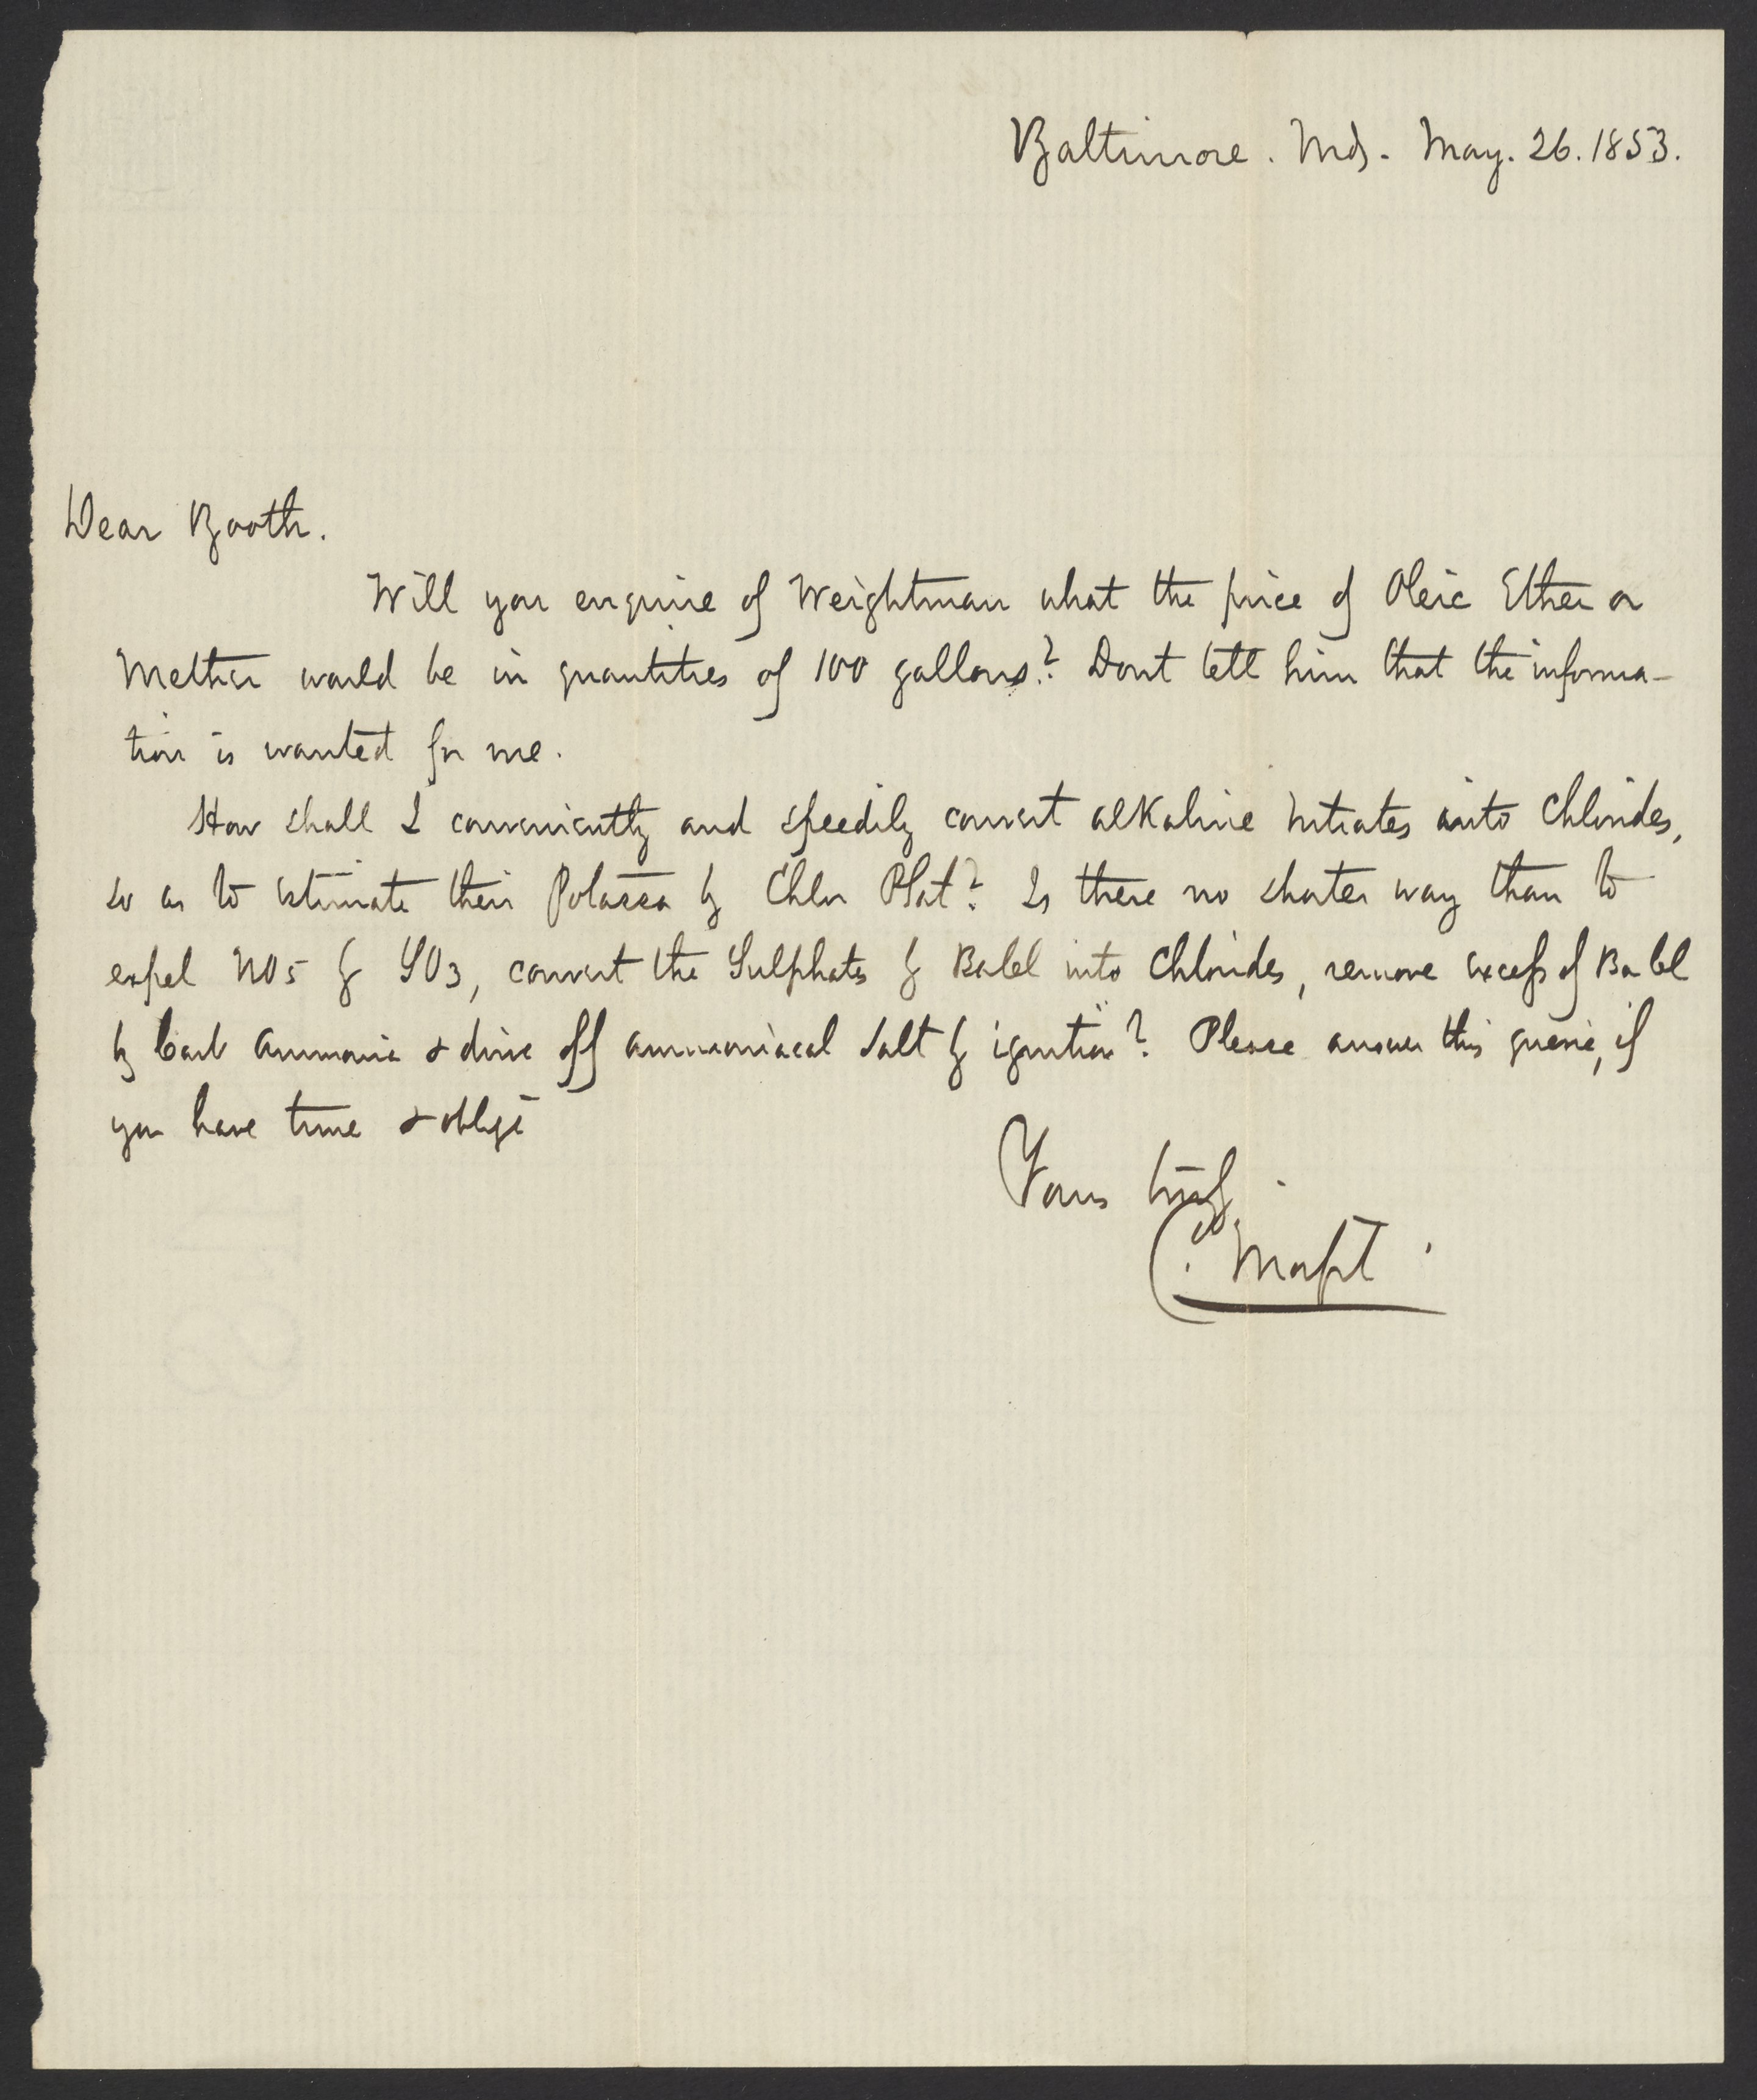 Baltimore. Md. May. 26. 1853.
Dear Booth.
Will you enquire of Weightman what the price of Oleic Ether or
would be in quantities of 100 gallons? Dont tell him that the informa-
tion is wanted for me.
How shall I conveniently and speedily convert alkaline nitrates into Chlorides,
so as to estimate their Potassa by Chlor Plat? Is there no shorter way than to
expel NO5 by SO3, convert the Sulphates by BaCl into Chlorides, remove excess of BaCl
by Carb Ammonia & drive off ammoniacal salt by ignition? Please answer this querie, if
you have time & oblige
Yours truly.
C. Morfit.